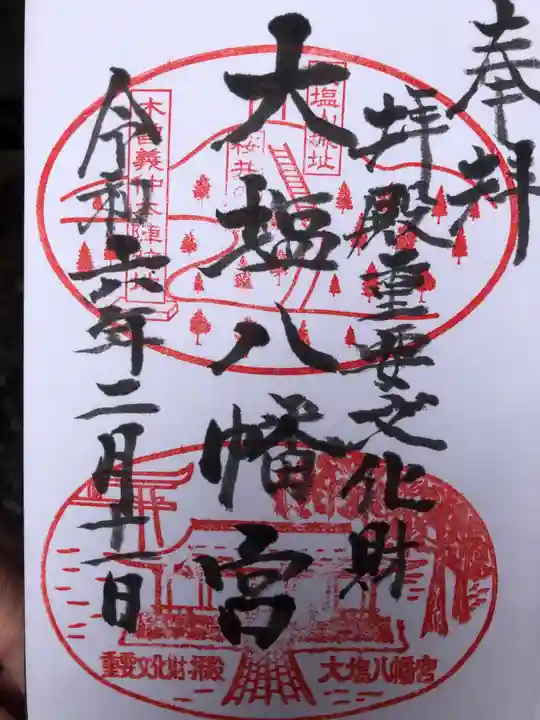 奉拝
拝殿重要文化財
大塩八幡宮
令和六年二月十一日
塩山城址
桜井の
木曽義仲本陣
重要文化財拝殿
大塩八幡宮